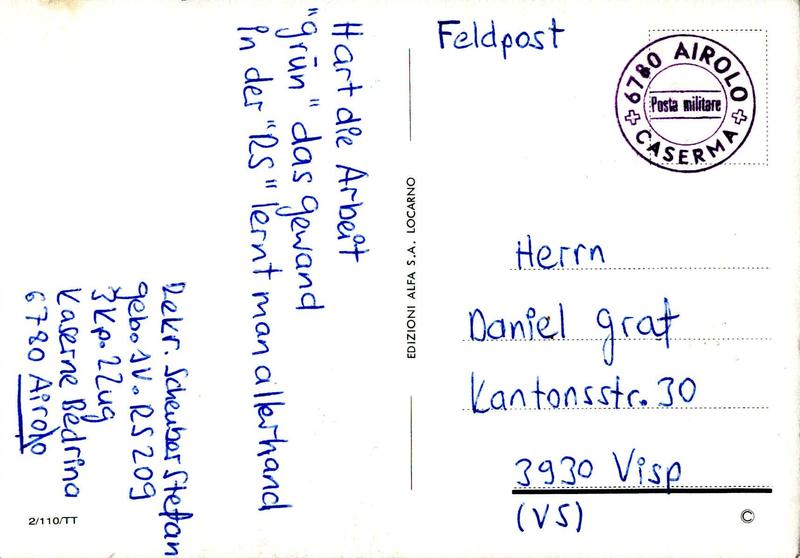 Hart die Arbeit
"grün" das gewand
In der "RS" lernt man allerhand
Rekr. Scheuber Stefan
geb. IV. RS 209
3Kp. 2Zug
Kaserne Bedrina
6780 Airolo
2/110/TT
EDIZIONI ALFA S.A. LOCARNO
Feldpost
6780 AIROLO
Posta militare
CASERMA
Herrn
Daniel Graf
Kantonsstr. 30
3930 Visp
(VS)
©